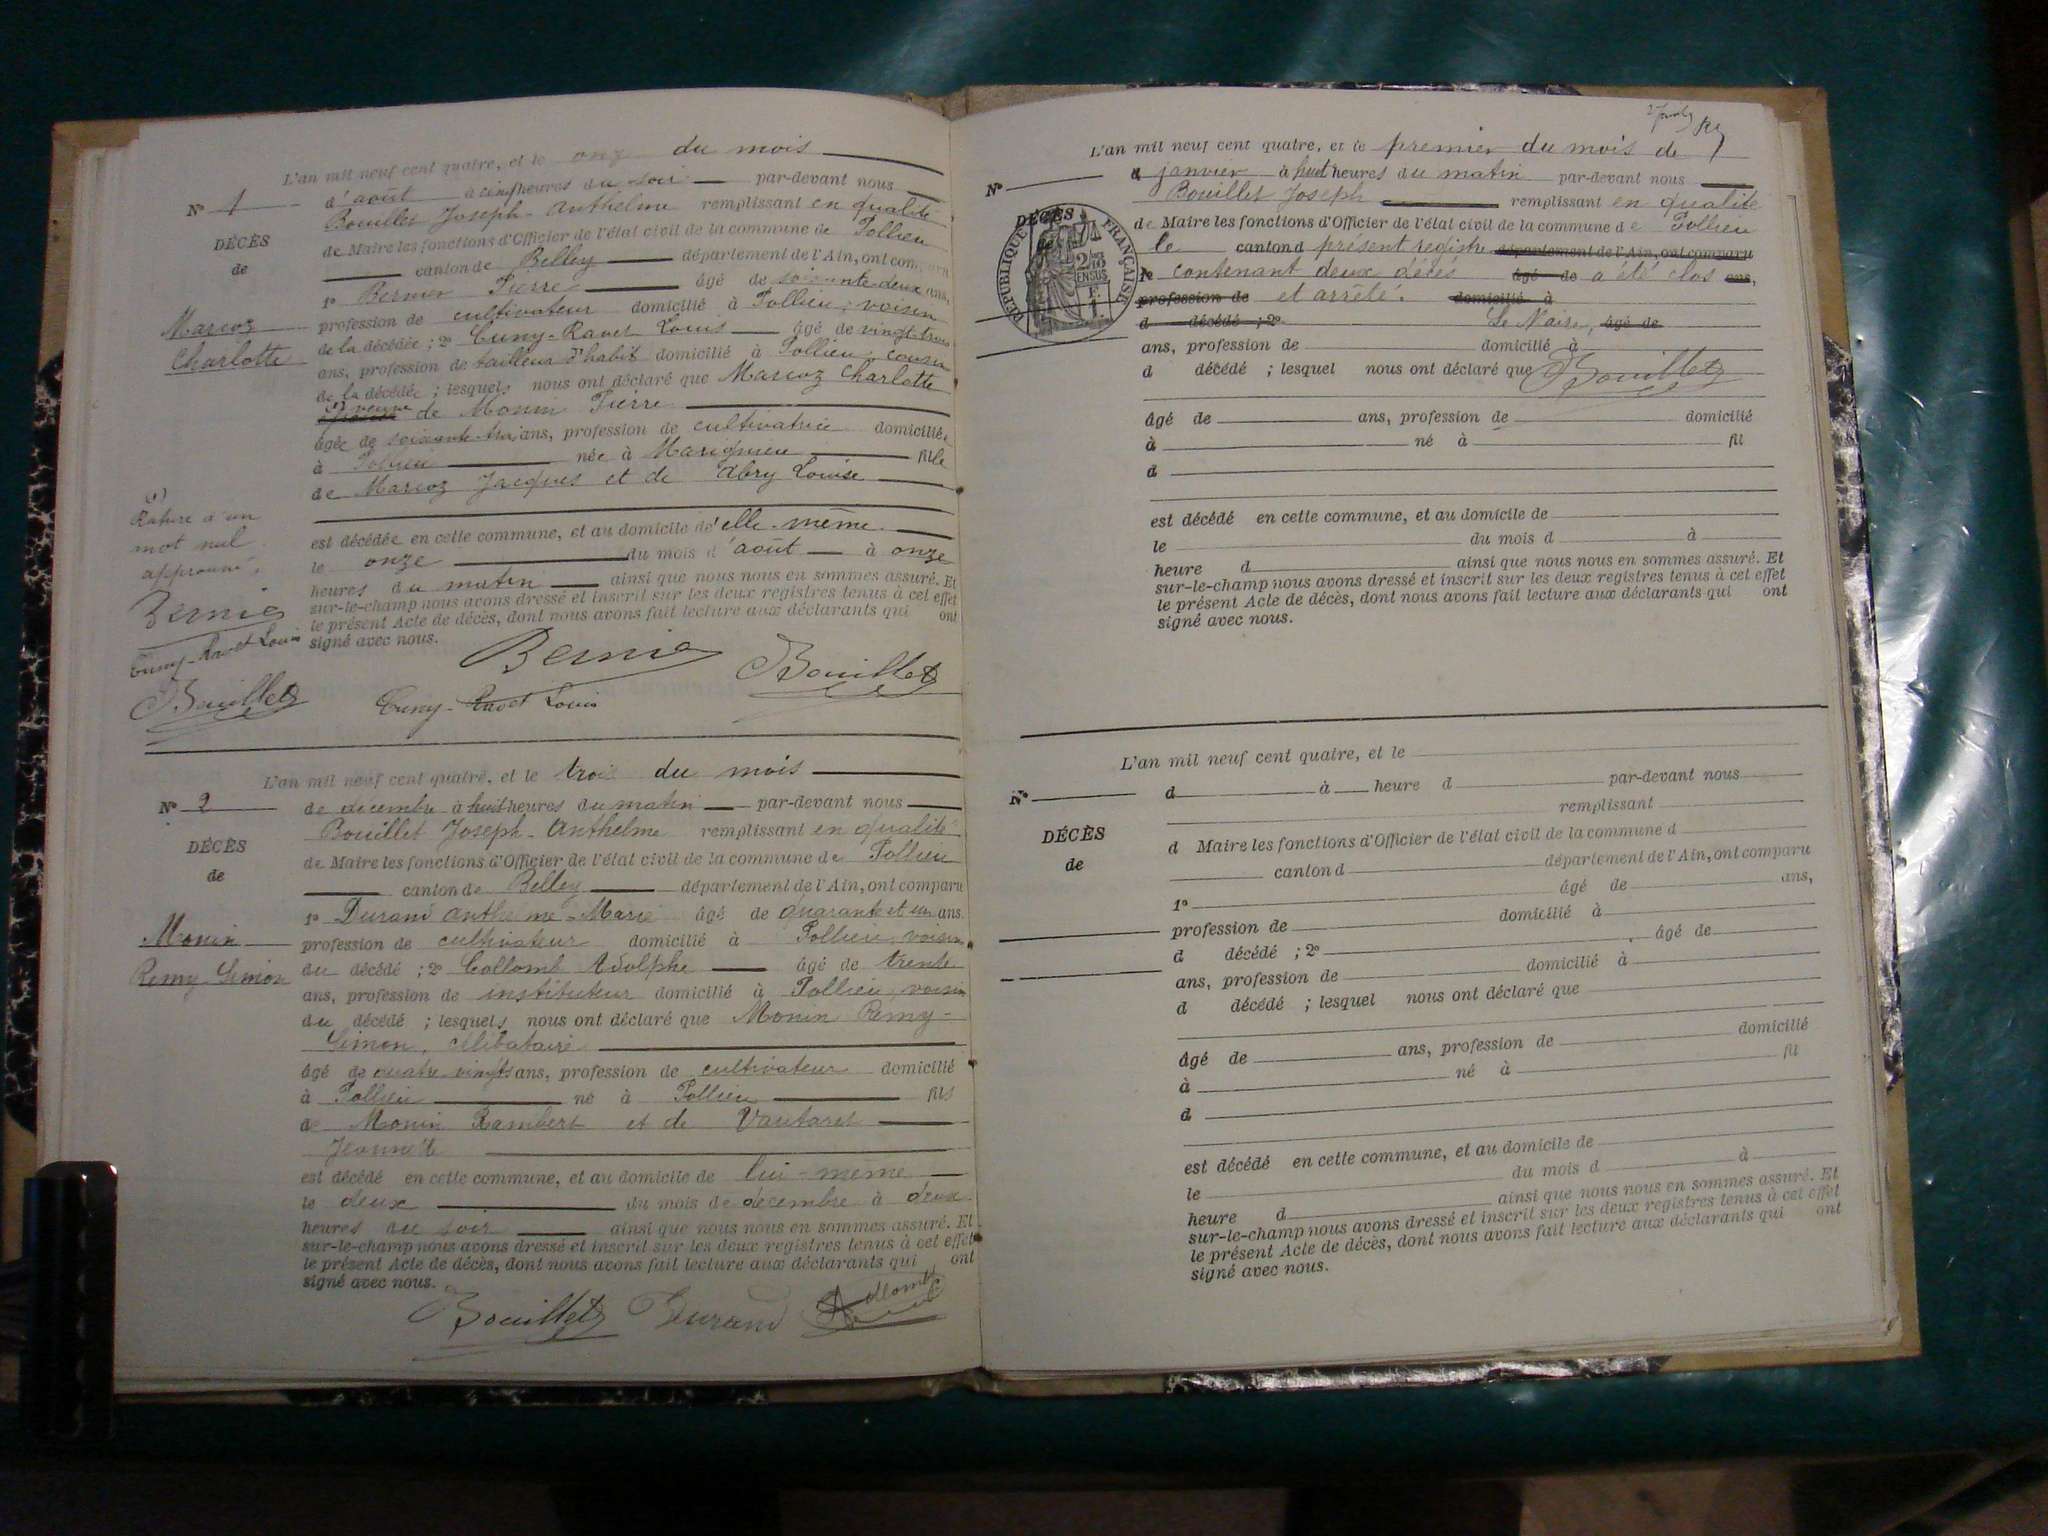 L'an mil neuf cent quatre, et le onze du mois
d'août à cinq heures du soir par-devant nous
Bouillet Joseph-Anthelme remplissant en qualité
de Maire les fonctions d'Officier de l'état civil de la commune de Pollieu
canton de Belley département de l'Ain, ont comparu
1° Bernier Pierre âgé de soixante-deux ans,
profession de cultivateur domicilié à Pollieu, voisin
de la décédée ; 2° Cuny-Ravet Louis âgé de vingt-trois
ans, profession de tailleur d'habit domicilié à Pollieu, cousin
de la décédée ; lesquels nous ont déclaré que Marcoz Charlotte
(1) veuve de Monin Pierre
âgée de soixante-trois ans, profession de cultivatrice domiciliée
à Pollieu née à Marignieu fille
de Marcoz Jacques et de Abry Louise
est décédée en cette commune, et au domicile de d'elle-même
le onze du mois d'août à onze
heures du matin ainsi que nous nous en sommes assuré. Et
sur-le-champ nous avons dressé et inscrit sur les deux registres tenus à cet effet
le présent Acte de décès, dont nous avons fait lecture aux déclarants qui ont
signé avec nous.
Bernier Bouillet
Cuny-Ravet Louis
N° 1
DÉCÈS
de
Marcoz
Charlotte
(1)
Rature d'un
mot nul
approuvé.
Bernier
Cuny-Ravet Louis
Bouillet
L'an mil neuf cent quatre, et le trois du mois
de décembre à huit heures du matin par-devant nous
Bouillet Joseph-Anthelme remplissant en qualité
de Maire les fonctions d'Officier de l'état civil de la commune de Pollieu
canton de Belley département de l'Ain, ont comparu
1° Durand Anthelme-Marie âgé de quarante et un ans,
profession de cultivateur domicilié à Pollieu, voisin
du décédé ; 2° Collomb Adolphe âgé de trente
ans, profession de instituteur domicilié à Pollieu, voisin
du décédé ; lesquels nous ont déclaré que Monin Remy-
Simon, célibataire
âgé de quatre vingts ans, profession de cultivateur domicilié
à Pollieu né à Pollieu fils
de Monin Rambert et de Vautaret
Jeannette
est décédé en cette commune, et au domicile de lui-même
le deux du mois de décembre à deux
heures du soir ainsi que nous nous en sommes assuré. Et
sur-le-champ nous avons dressé et inscrit sur les deux registres tenus à cet effet
le présent Acte de décès, dont nous avons fait lecture aux déclarants qui ont
signé avec nous.
Bouillet Durand A Collomb
N° 2
DÉCÈS
de
Monin
Remy-Simon
L'an mil neuf cent quatre, et le premier du mois de
d janvier à huit heures du matin par-devant nous
Bouillet Joseph remplissant en qualité
de Maire les fonctions d'Officier de l'état civil de la commune de Pollieu
le canton d présent registre département de l'Ain, ont comparu
1° contenant deux décès âgé de a été clos ans,
profession de et arrêté. domicilié à
d décédé ; 2° Le Maire, âgé de
ans, profession de domicilié à
d décédé ; lesquel nous ont déclaré que Bouillet
âgé de ans, profession de domicilié
à né à fil
d
est décédé en cette commune, et au domicile de
le du mois d à
heure d ainsi que nous nous en sommes assuré. Et
sur-le-champ nous avons dressé et inscrit sur les deux registres tenus à cet effet
le présent Acte de décès, dont nous avons fait lecture aux déclarants qui ont
signé avec nous.
N°
DÉCÈS
RÉPUBLIQUE FRANÇAISE
2/10
EN SUS
L'an mil neuf cent quatre, et le
d à heure d par-devant nous
remplissant
d Maire les fonctions d'Officier de l'état civil de la commune d
canton d département de l'Ain, ont comparu
1° âgé de ans,
profession de domicilié à
d décédé ; 2° âgé de
ans, profession de domicilié à
d décédé ; lesquel nous ont déclaré que
âgé de ans, profession de domicilié
à né à fil
d
est décédé en cette commune, et au domicile de
le du mois d à
heure d ainsi que nous nous en sommes assuré. Et
sur-le-champ nous avons dressé et inscrit sur les deux registres tenus à cet effet
le présent Acte de décès, dont nous avons fait lecture aux déclarants qui ont
signé avec nous.
N°
DÉCÈS
de